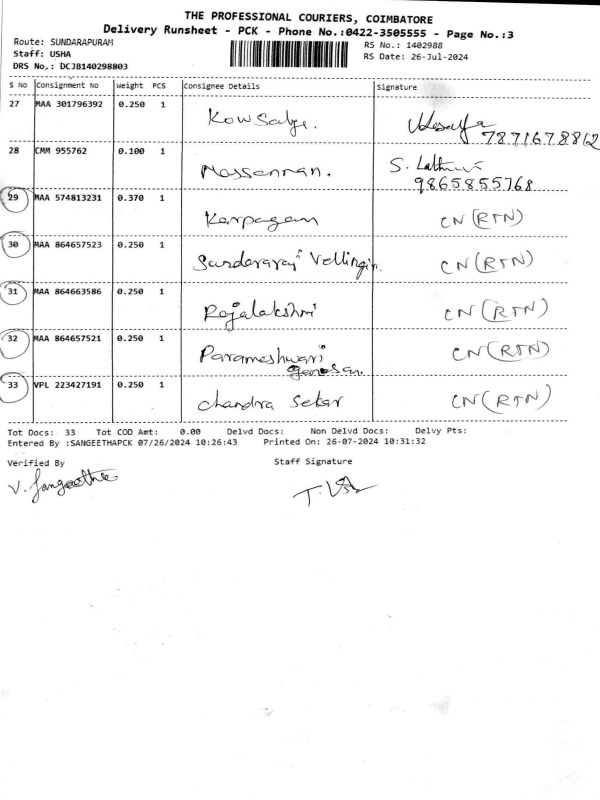 THE PROFESSIONAL COURIERS, COIMBATORE
Delivery Runsheet - PCK - Phone No.:0422-3505555 - Page No.:3
Route: SUNDARAPURAM
Staff: USHA
DRS No,: DCJB140298803
RS No.: 1402988
RS Date: 26-Jul-2024
S No Consignment No Weight PCS Consignee Details Signature
27 MAA 301796392 0.250 1 Kowsalya.
7871678862
28 CMM 955762 0.100 1 S.
9865855768
29 MAA 574813231 0.370 1 Karpagam CN (RTN)
30 MAA 864657523 0.250 1 Sundararaj Vellingiri. CN (RTN)
31 MAA 864663586 0.250 1 Rajalakshmi CN (RTN)
32 MAA 864657521 0.250 1 Parameshwari CN (RTN)
ganesan.
33 VPL 223427191 0.250 1 Chandra Sekar CN (RTN)
Tot Docs: 33 Tot COD Amt: 0.00 Delvd Docs: Non Delvd Docs: Delvy Pts:
Entered By :SANGEETHAPCK 07/26/2024 10:26:43 Printed On: 26-07-2024 10:31:32
Verified By Staff Signature
V. Sangeetha